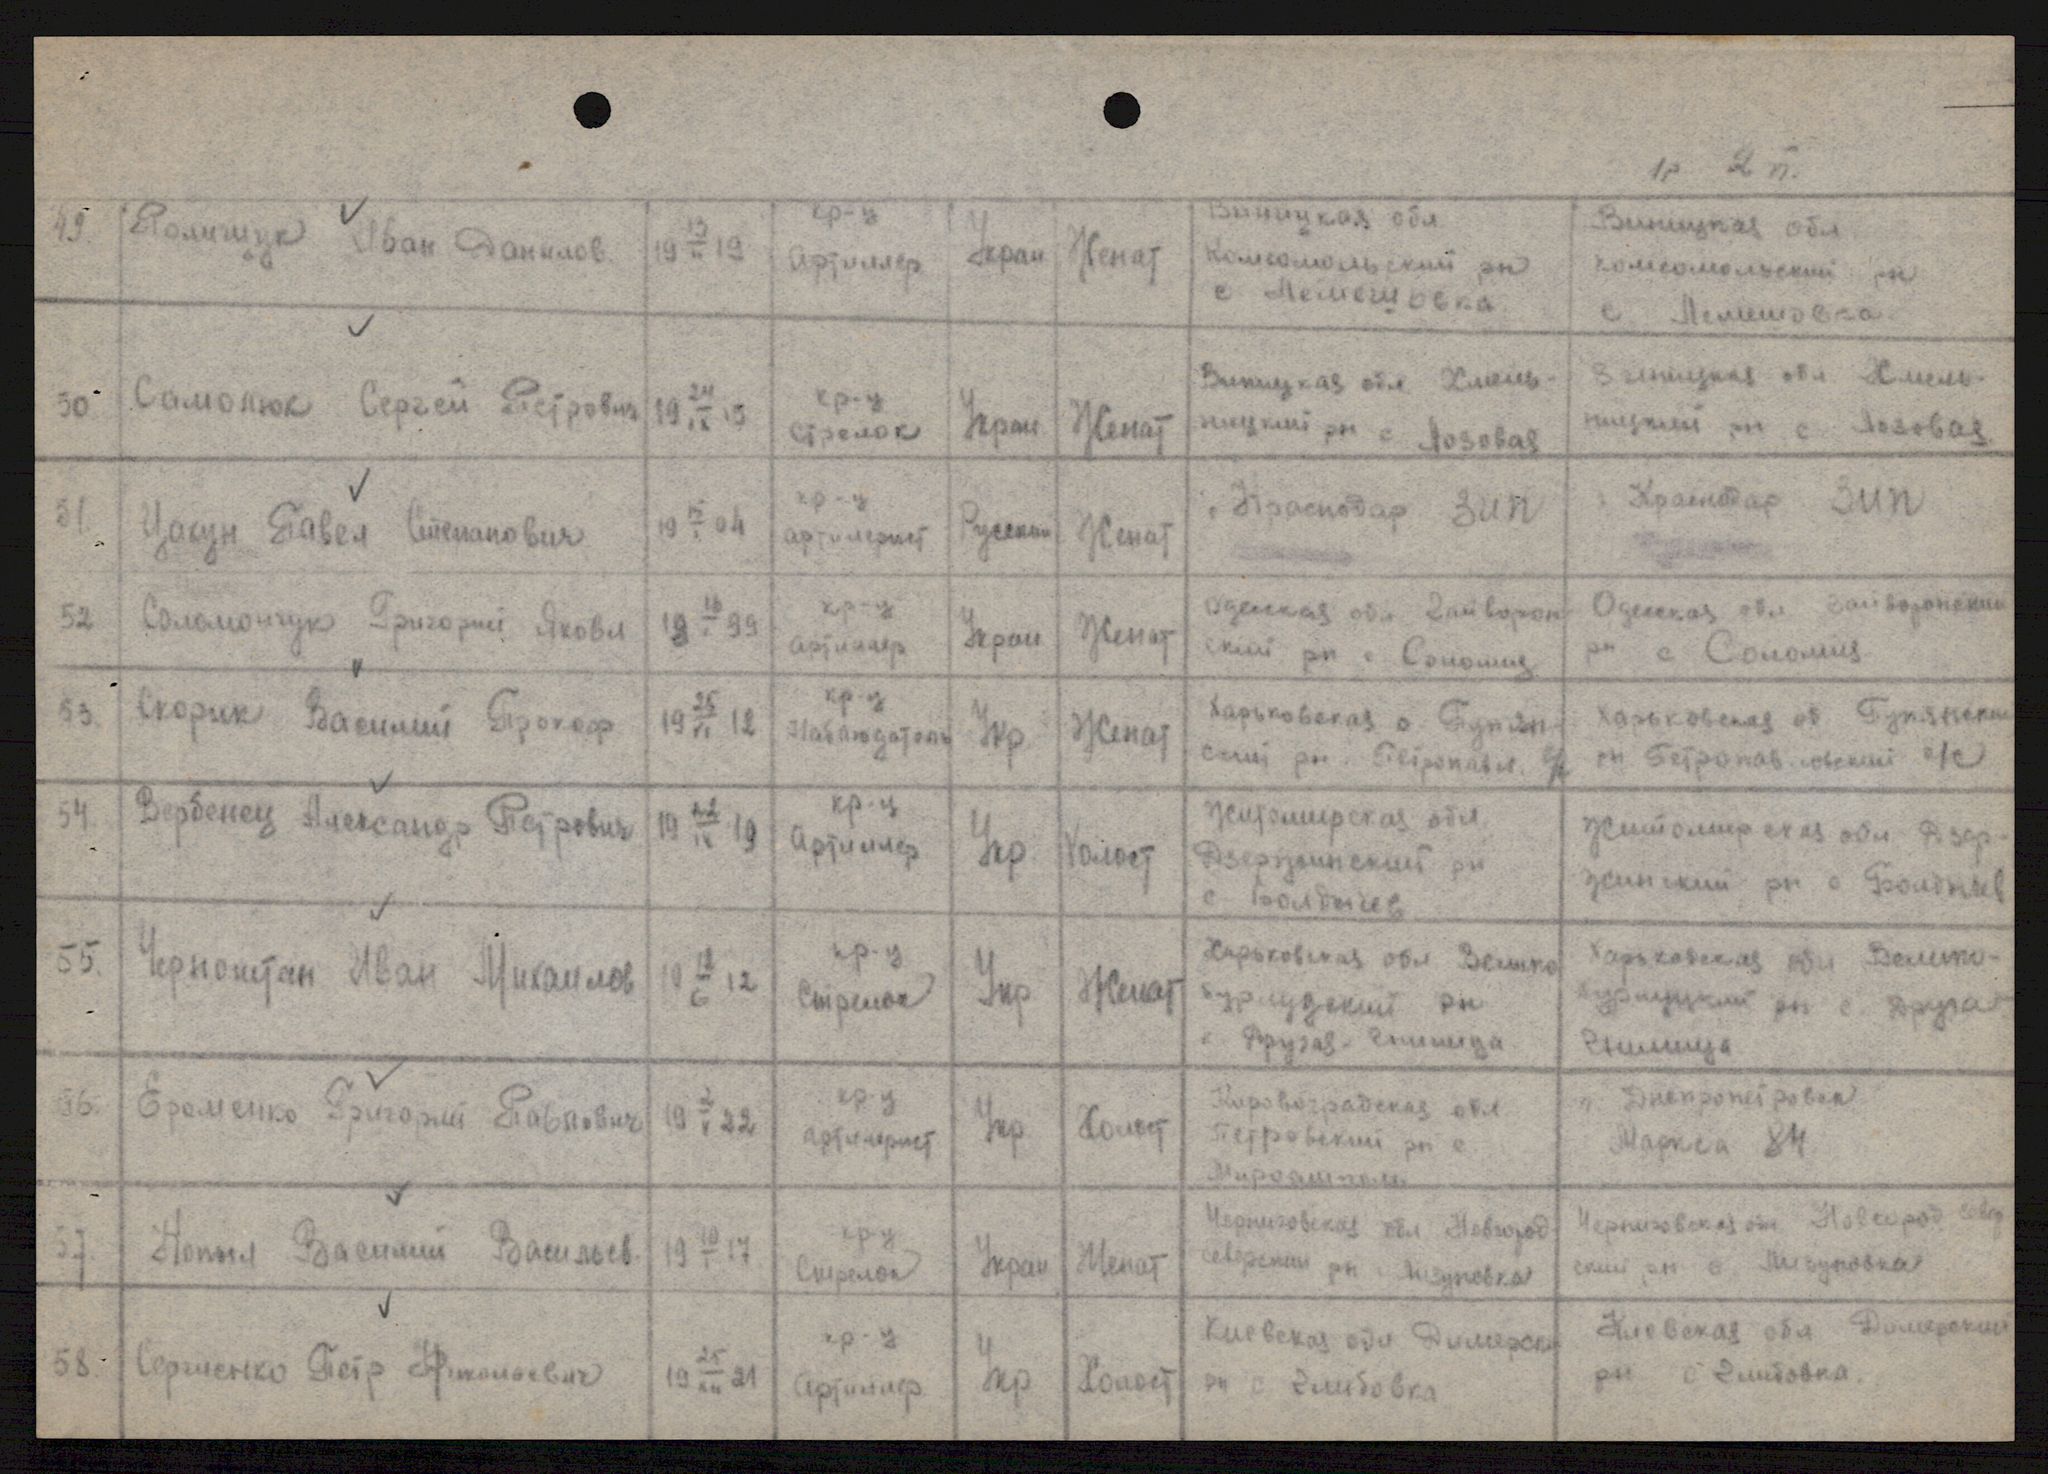 1р 2 п.
49. Полищук Иван Данилов. 19 13/II 19 кр-ц Артиллер Украи Женат
Виницкая обл
Комсомольский рн
с Лемешовка
Виницкая обл.
комсомольский рн
с Лемешовка.
50 Самолюк Сергей Петрович 19 24/IX 15 кр-ц Стрелок Украи Женат
Виницкая обл Хмель-
ницкий рн с Лозовая
Виницкая обл Хмель-
ницкий рн с Лозовая
51. Цакун Павел Степанович 19 15/I 04 кр-ц артилерист Русский Женат
г. Краснодар ЗИП
г. Краснодар ЗИП
52 Соломончук Григорий Яковл 19 18/I 99 кр-ц Артиллер Украи Женат
Одесская обл Гайворон
ский рн с Соломия
Одесская обл Гайворонский
рн с Соломия
53. Скорик Василий Прокоф 19 25/VI 12 кр-ц Наблюдатель Укр Женат
Харьковская о Купян-
ский рн. Петропавл. с/с
Харьковская об Купянский
рн Петропавловский с/с
54. Вербенец Александр Петрович 19 22/IX 19 кр-ц Артиллер Укр. Холост
Житомирская обл
Дзержинский рн
с Болдычев
Житомирская обл Дзер-
жинский рн с Болдычев
55. Черноштан Иван Михаилов 19 12/6 12 кр-ц Стрелок Укр Женат
Харьковская обл Велико
бурлудский рн
с Другая-Гнилица
Харьковская обл Велико-
бурлуцкий рн с. Друга
Гнилица
56. Ероменко Григорий Павлович 19 2/V 22 кр-ц артилерист Укр Холост
Кировоградская обл
Петровский рн с.
г. Днепропетровск
Маркса 84
57. Копыл Василий Васильев. 19 10/I 17 кр-ц Стрелок Украи Женат
Черниговская обл Новгород
северский рн с Лизуновка
Черниговская обл Новгород север
ский рн с Лизуновка
58. Сергиенко Петр Николаевич 19 25/XII 21 кр-ц Артиллер Укр Холост
Киевская обл Димерск
рн с Глибовка
Киевская обл Димерский
рн с Глибовка.